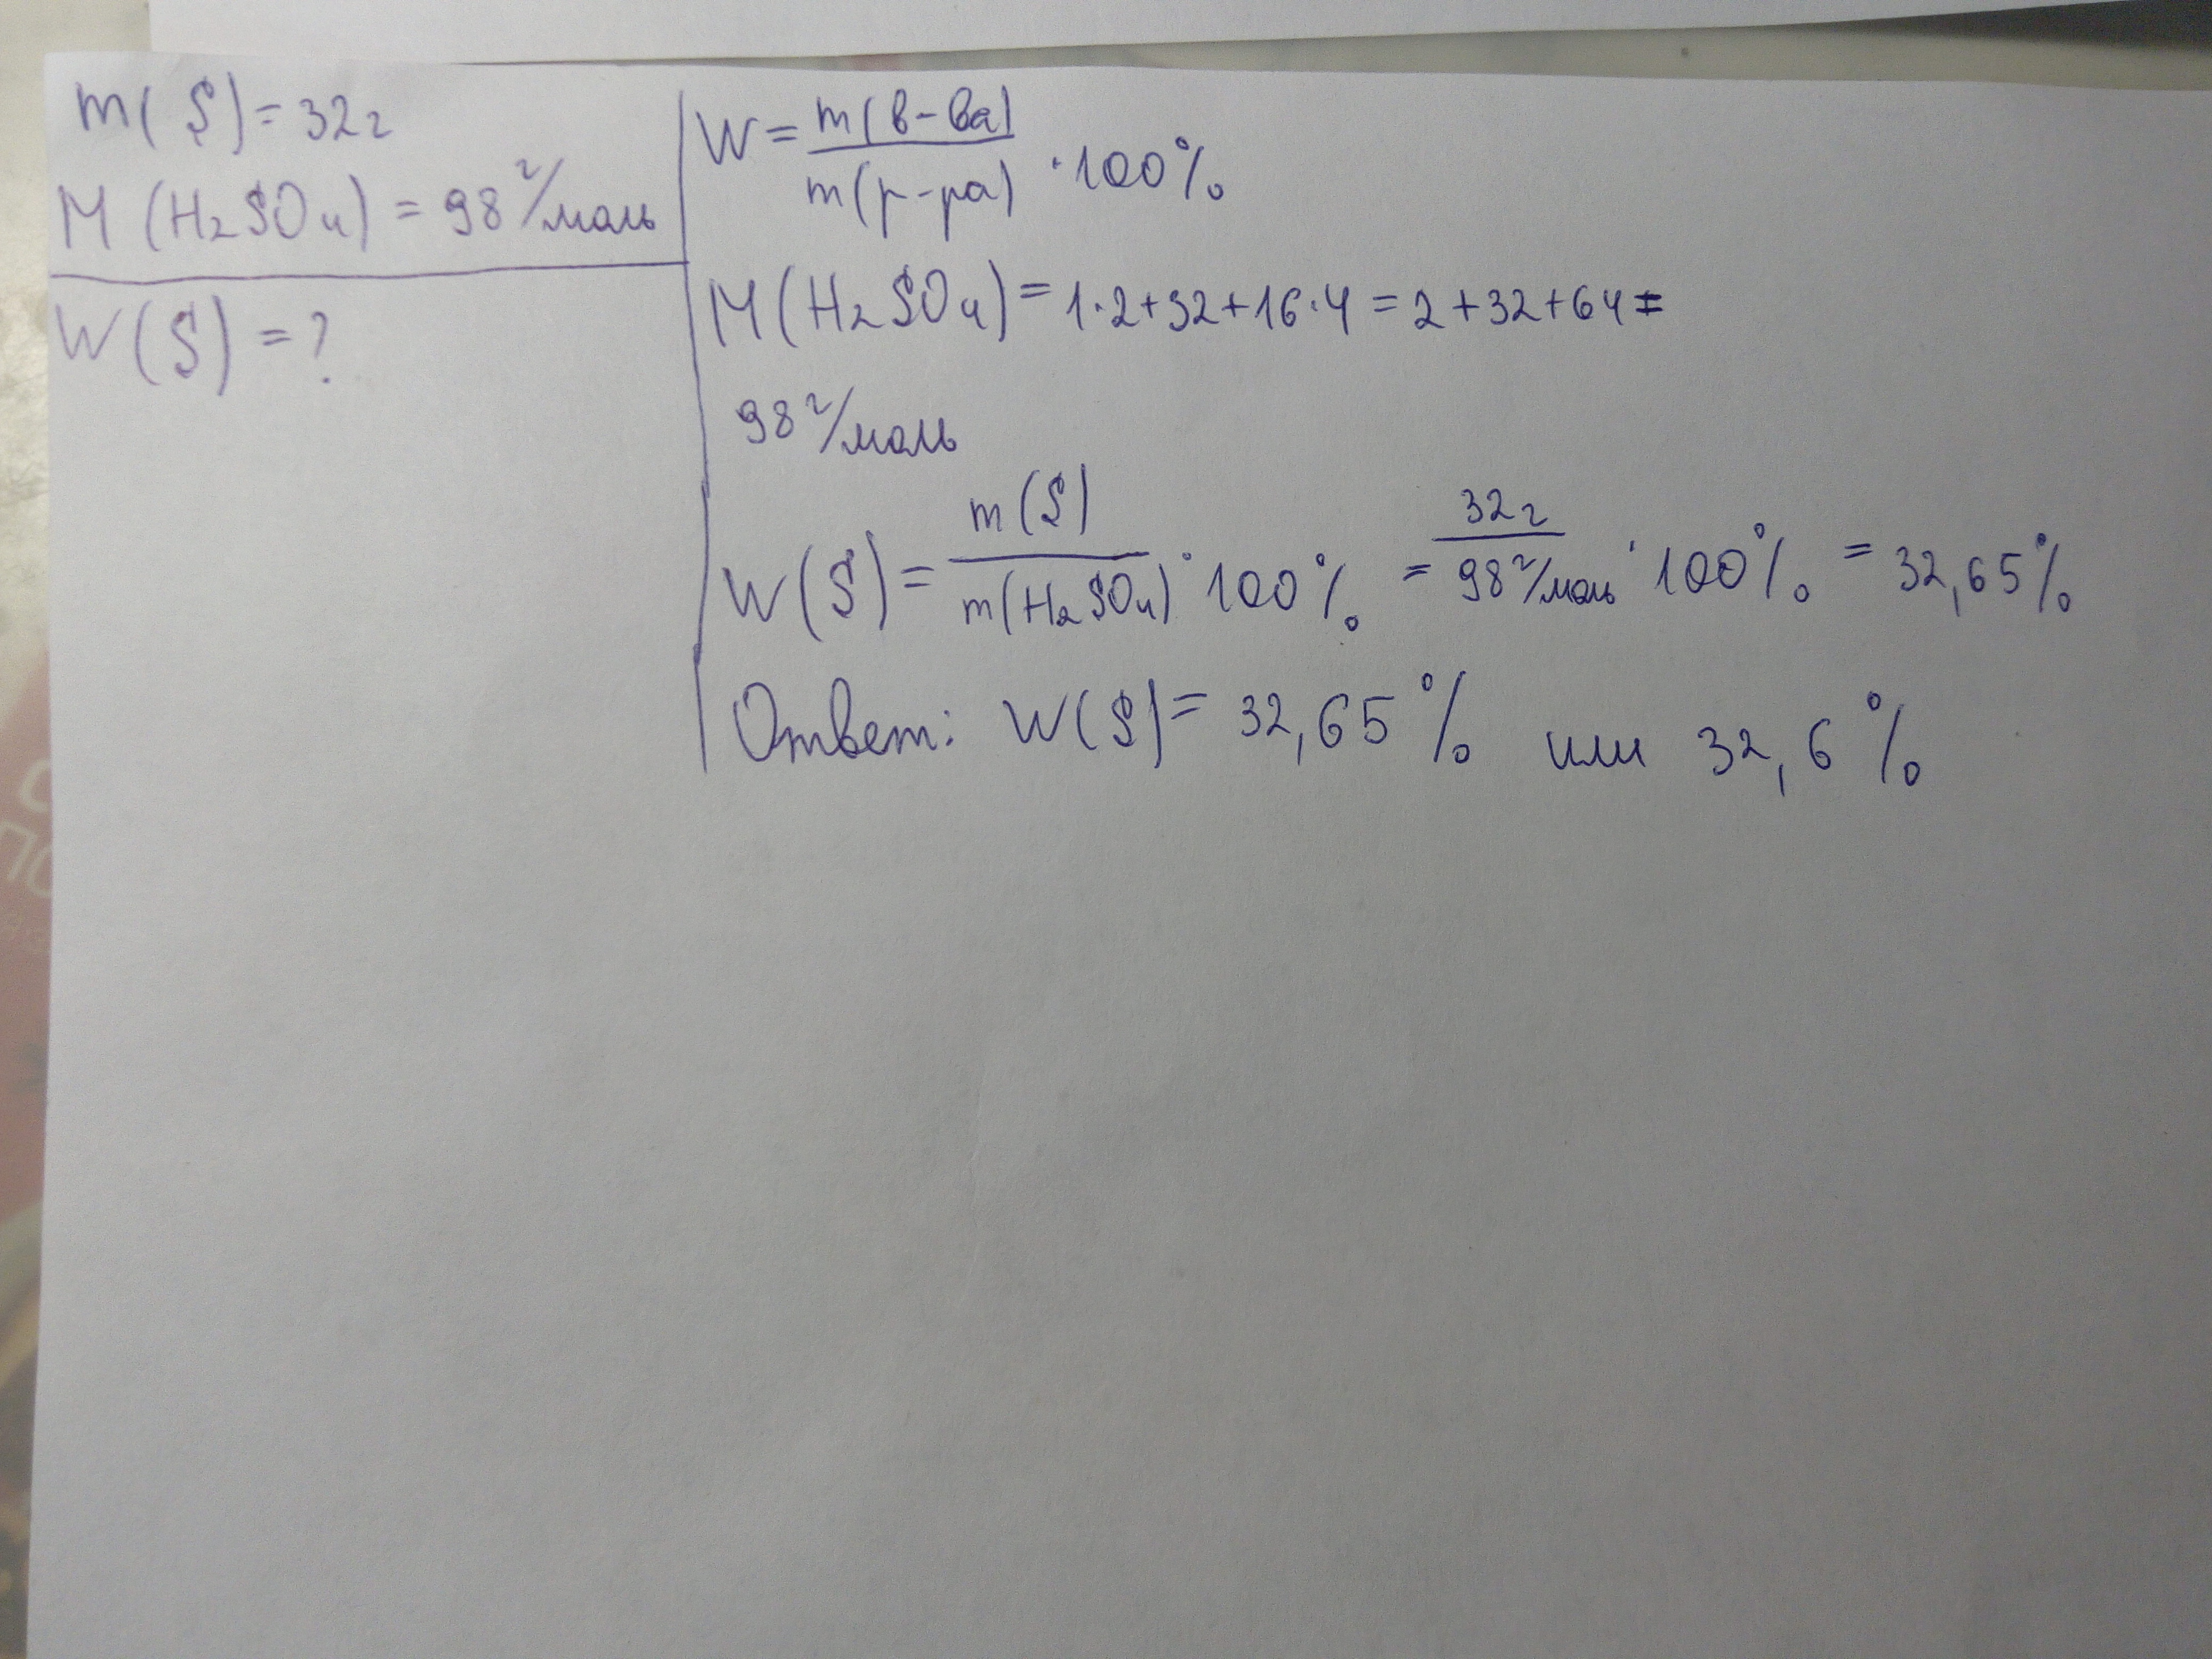 m(S)=32г
M(H₂SO₄) = 98 г/моль
W(S) = ?
W = m(в-ва)/m(р-ра) · 100%
M(H₂SO₄) = 1·2+32+16·4 = 2+32+64=
98 г/моль
W(S) = m(S)/m(H₂SO₄) · 100% = 32г/98 г/моль · 100% = 32,65%
Ответ: W(S) = 32,65% или 32,6%